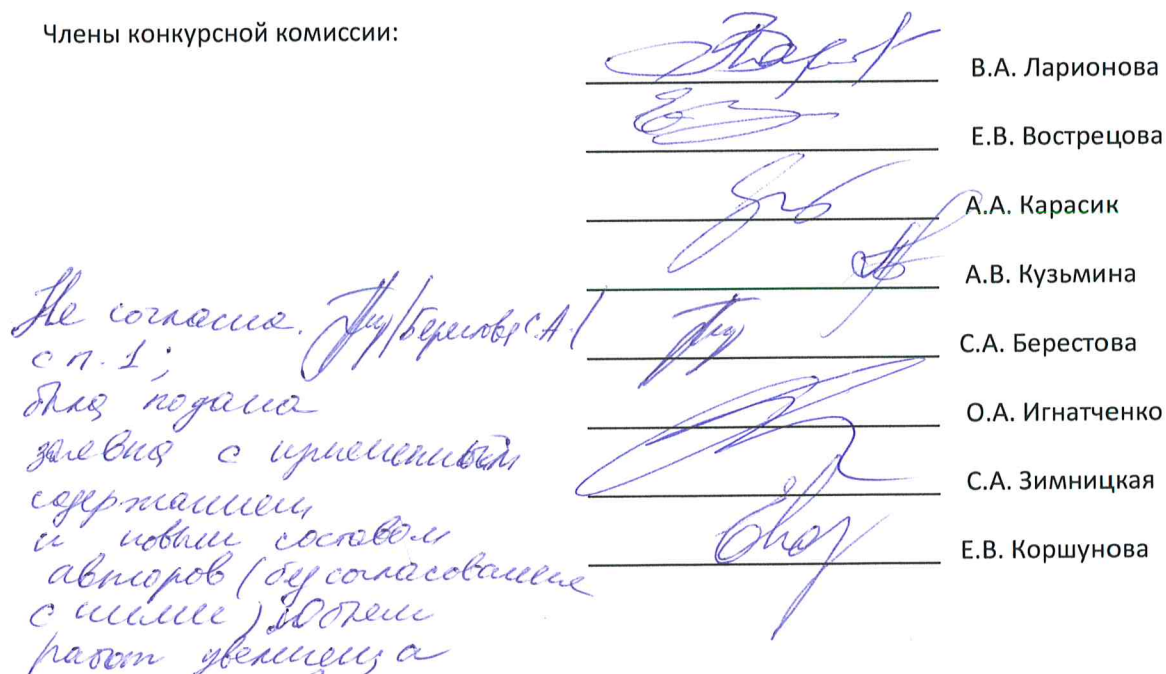 Члены конкурсной комиссии:
В.А. Ларионова
Е.В. Вострецова
А.А. Карасик
А.В. Кузьмина
С.А. Берестова
О.А. Игнатченко
С.А. Зимницкая
Е.В. Коршунова
Не согласна. /Берестова С.А./
с п. 1;
была подана
заявка с измененным
содержанием
и новым составом
авторов (без согласования
с ними) Объем
работ увеличен, а